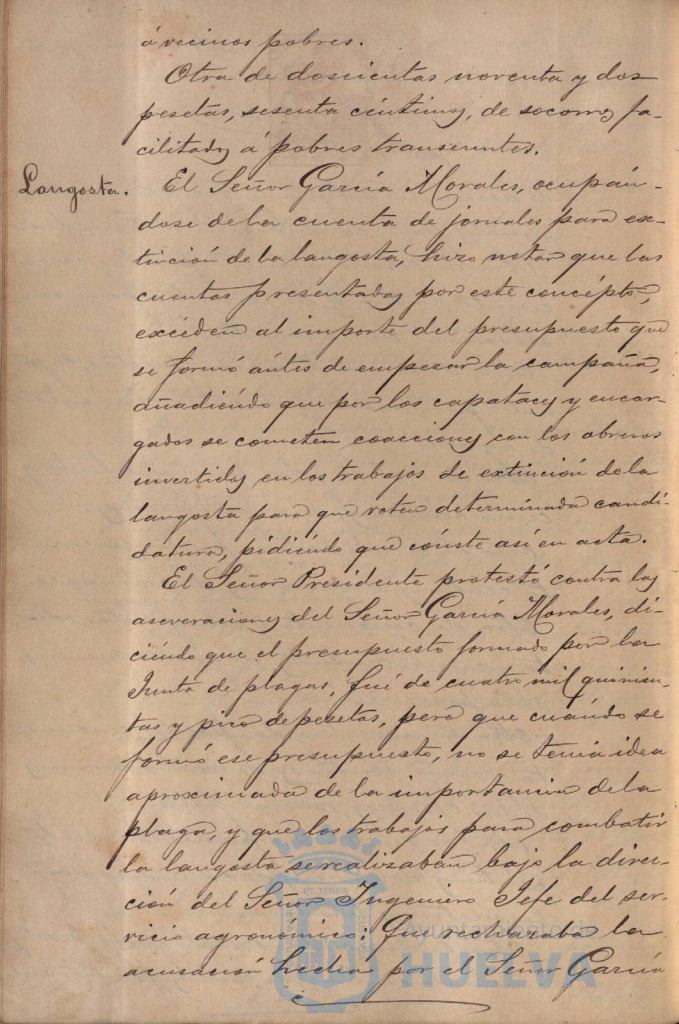 á vecinos pobres.
Otra de doscientas noventa y dos
pesetas, sesenta céntimos, de socorros fa-
cilitados á pobres transeuntes.
Langosta.
El Señor García Morales, ocupán-
dose de la cuenta de jornales para ex-
tinción de la langosta, hizo notar que las
cuentas presentadas por este concépto,
excéden al importe del presupuesto que
se formó ántes de empezar la campaña,
añadiéndo que por los capataces y encar-
gados se cometen coacciones con los obreros
invertidos en los trabajos de extinción de la
langosta para que voten determinada candi-
datura, pidiéndo que cónste así en acta.
El Señor Presidente protestó contra las
aseveraciones del Señor García Morales, di-
ciéndo que el presupuesto formado por la
Junta de plagas, fué de cuatro mil quinien-
tas y pico de pesetas, pero que cuándo se
formó ese presupuesto, no se tenía idea
aproximada de la importancia de la
plaga, y que los trabajos para combatir
la langosta se realizaban bajo la direc-
ción del Señor Ingeniero Jefe del ser-
vicio agronómico; Que rechazaba la
acusación hecha por el Señor García
Ayuntamiento de
HUELVA